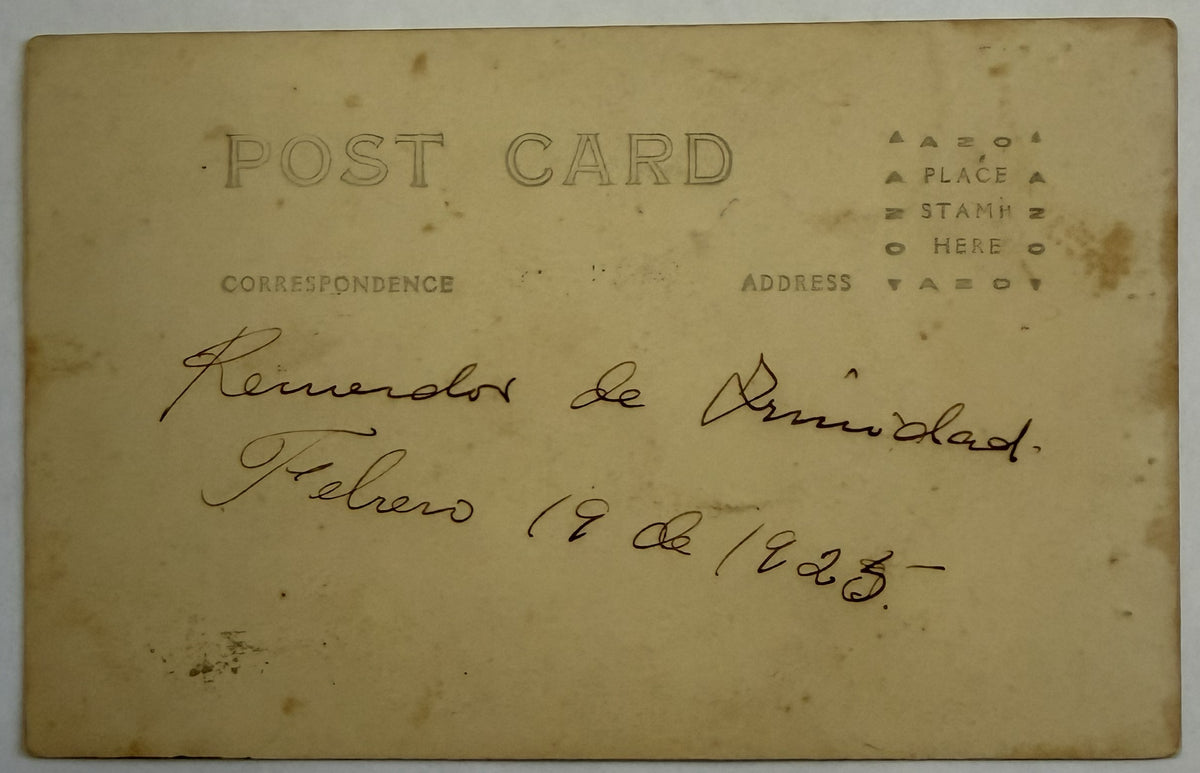 POST CARD
▲ A Z O ▲
A PLACE A
Z STAMP Z
O HERE O
▼ A Z O ▼
CORRESPONDENCE
ADDRESS
Recuerdos de Trinidad.
Febrero 19 de 1925.-